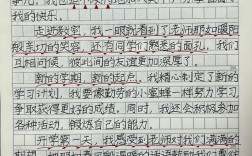 我的快乐。
走进教室，我一眼就看到了老师那如暖阳
般亲切的笑容，还有同学们熟悉的面孔，我们
互相问候，彼此间的友谊更加深厚了。
新的学期，新的起点。我精心制定了新的
学习计划，我要像勤劳的小蜜蜂一样努力学习
争取获得更好的成绩，同时，我还会积极参加
各种活动，锻炼自己的能力。
开学第一天，我感受到老师对我们满满的